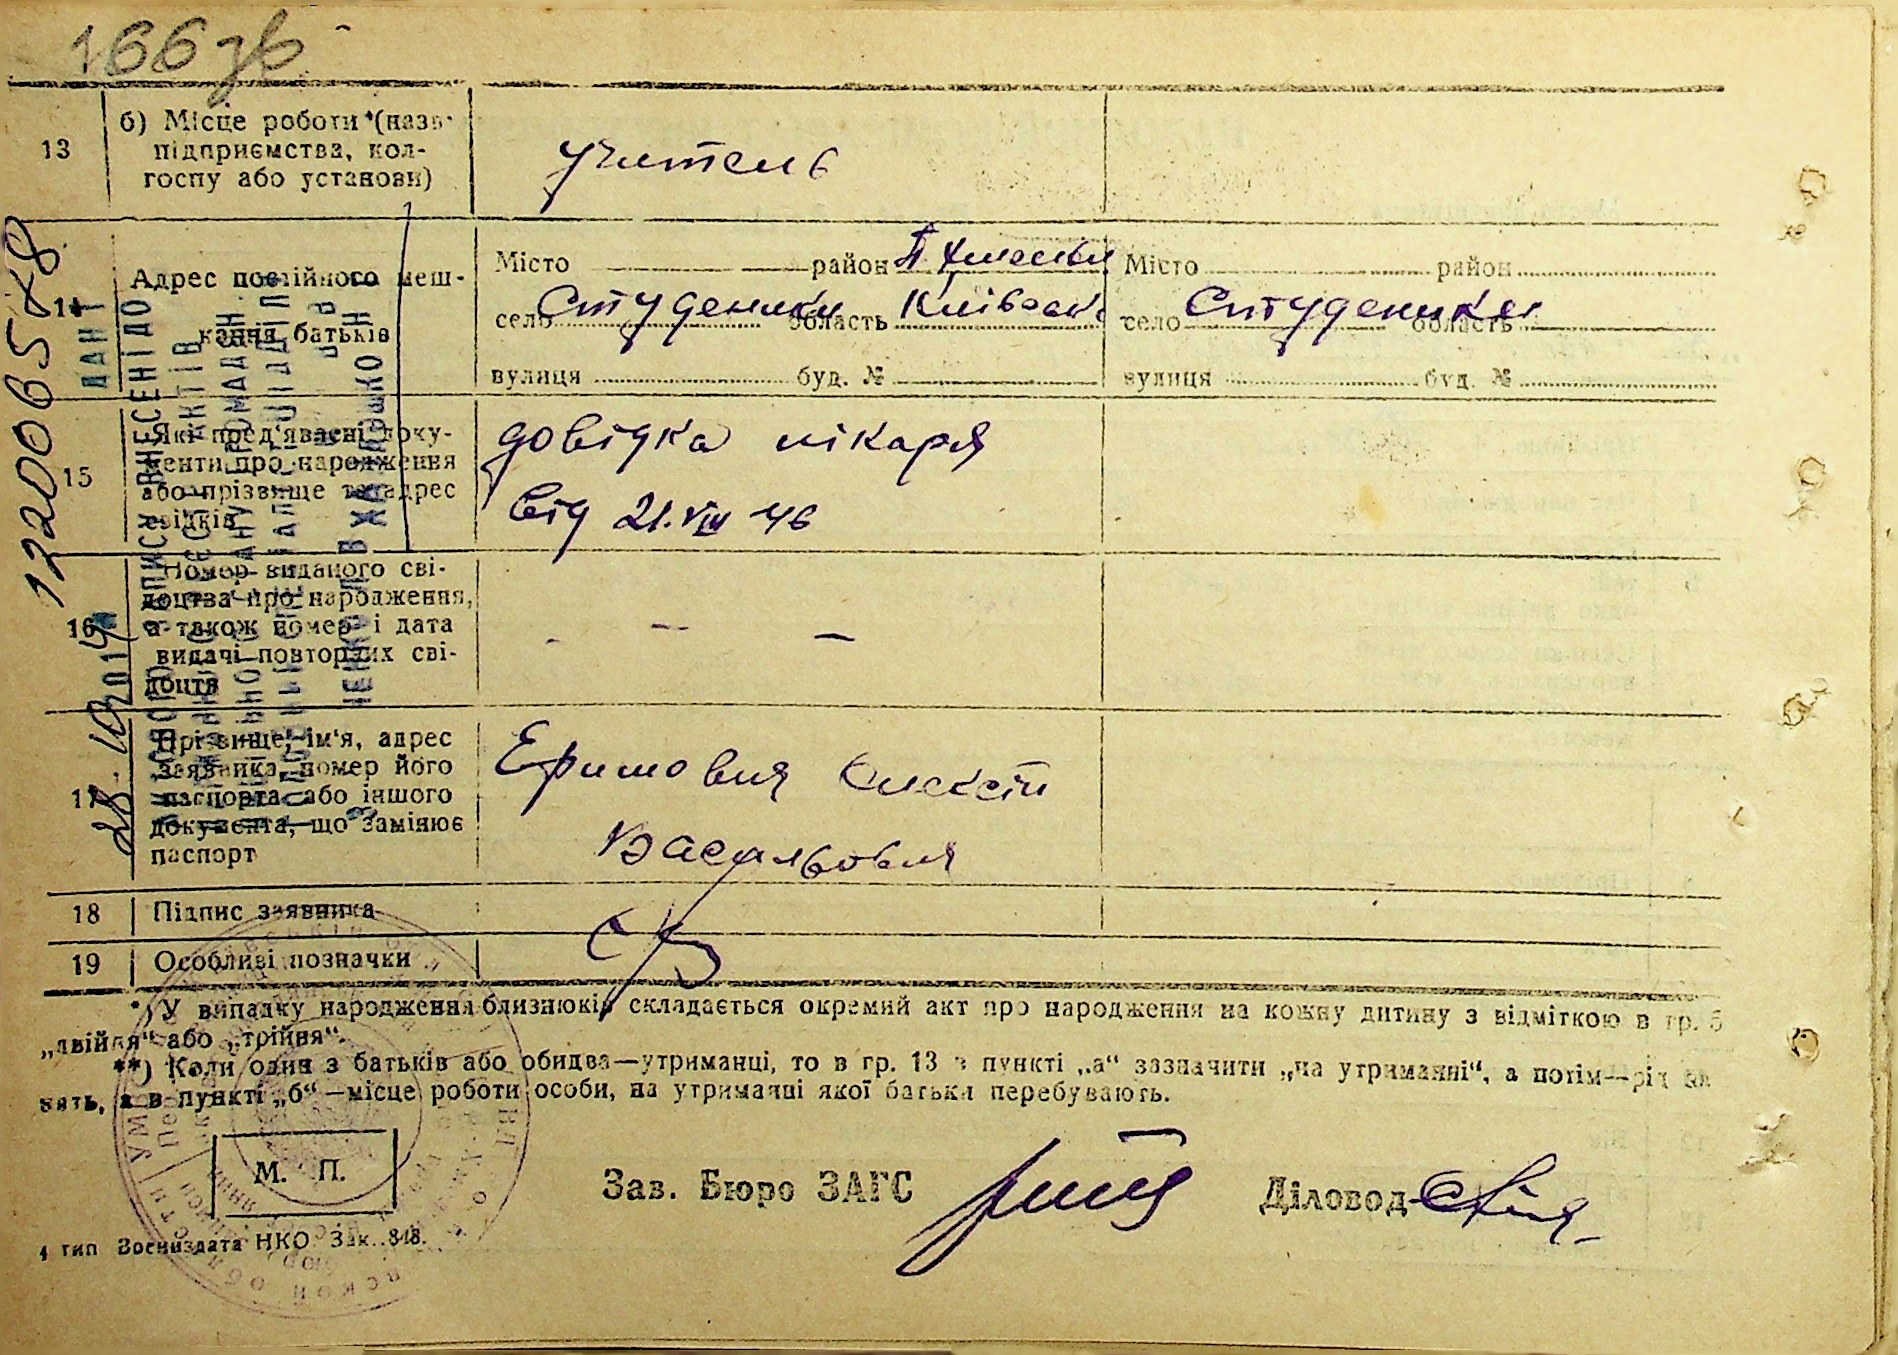 166 зв
13
б) Місце роботи *(назв
підприємства, кол-
госпу або установи)
учитель
14
Адрес постійного меш-
кання батьків
Місто район
село Студеники область Київськ
вулиця буд. №
Місто район
село Студеники область
вулиця буд. №
15
Які пред'явлені доку-
менти про народження
або прізвище та адрес
свідків
довідка лікаря
від 21.VIII 46
16
Номер виданого сві-
доцтва про народження,
а також номер і дата
видачі повторних сві-
доцтв
- - -
17
Прізвище, ім'я, адрес
заявника, номер його
паспорта або іншого
документа, що замінює
паспорт
Олексій
Васильович
18
Підпис заявника
19
Особливі позначки
*) У випадку народження близнюків складається окремий акт про народження на кожну дитину з відміткою в гр. 5
„двійня“ або „трійня“.
**) Коли один з батьків або обидва—утриманці, то в гр. 13 в пункті „а“ зазначити „на утриманні“, а потім—рід за
нять, а в пункті „б“—місце роботи особи, на утриманні якої батьки перебувають.
М. П.
Зав. Бюро ЗАГС
Діловод
4 тип Воениздата НКО Зак. 848.